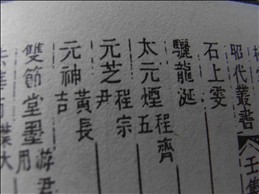 昭代叢書
石上雯
驪龍涎
太元煙 程齊五
元芝 程宗尹
元神 黃長吉
雙節堂墨 游君用